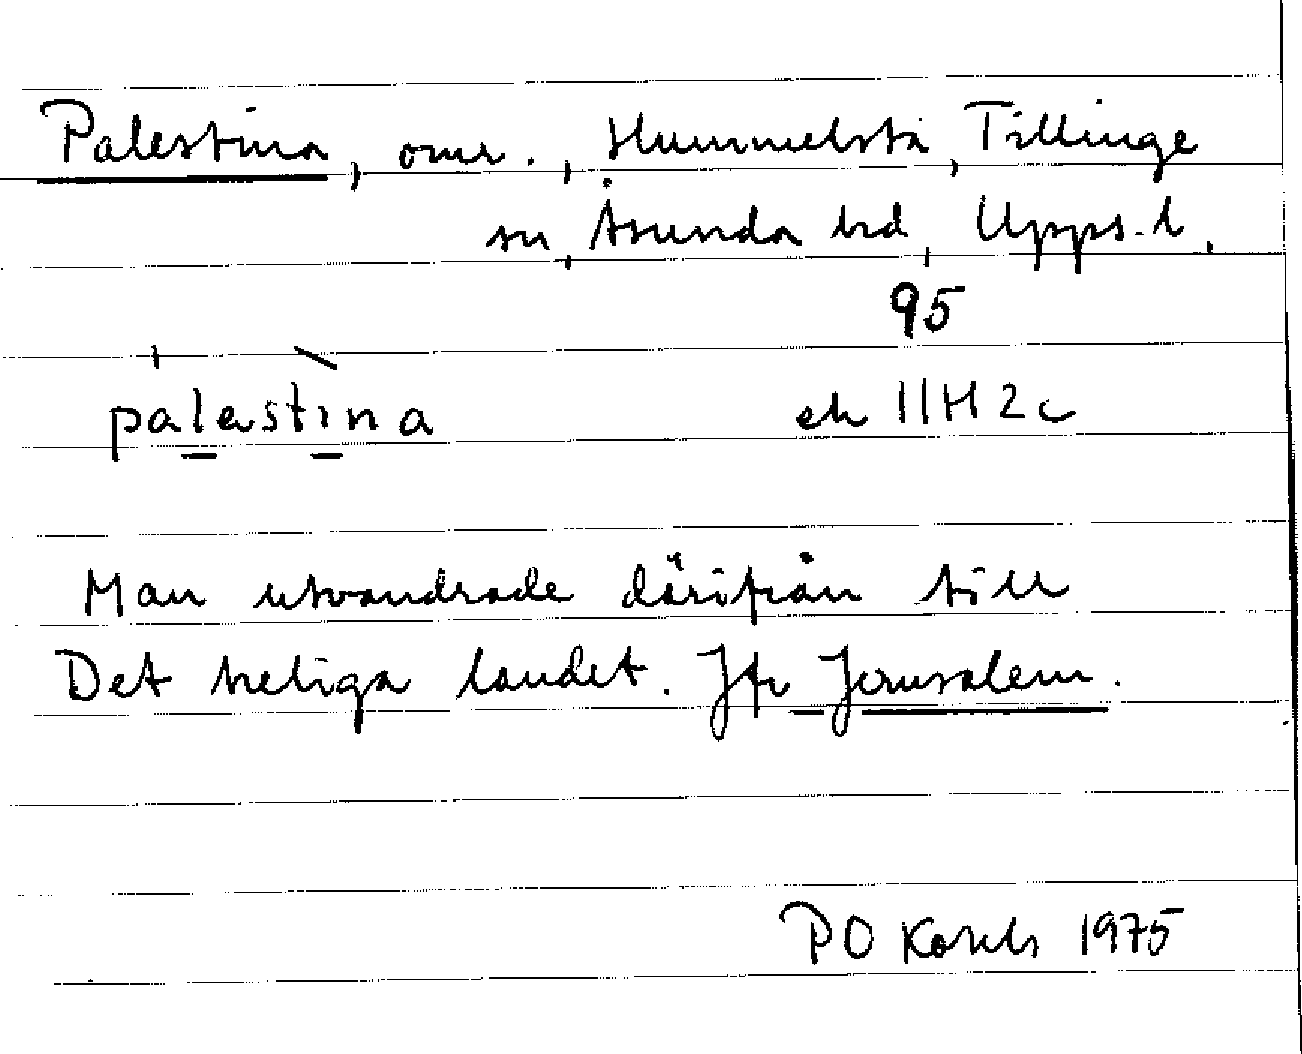 Palestina, omr., Hummelsta, Tillinge
sn, Åsunda hd, Upps. l.
95
palestina ek 11H 2c
Man utvandrade därifrån till
Det heliga landet. Jfr Jerusalem.
PO 1975